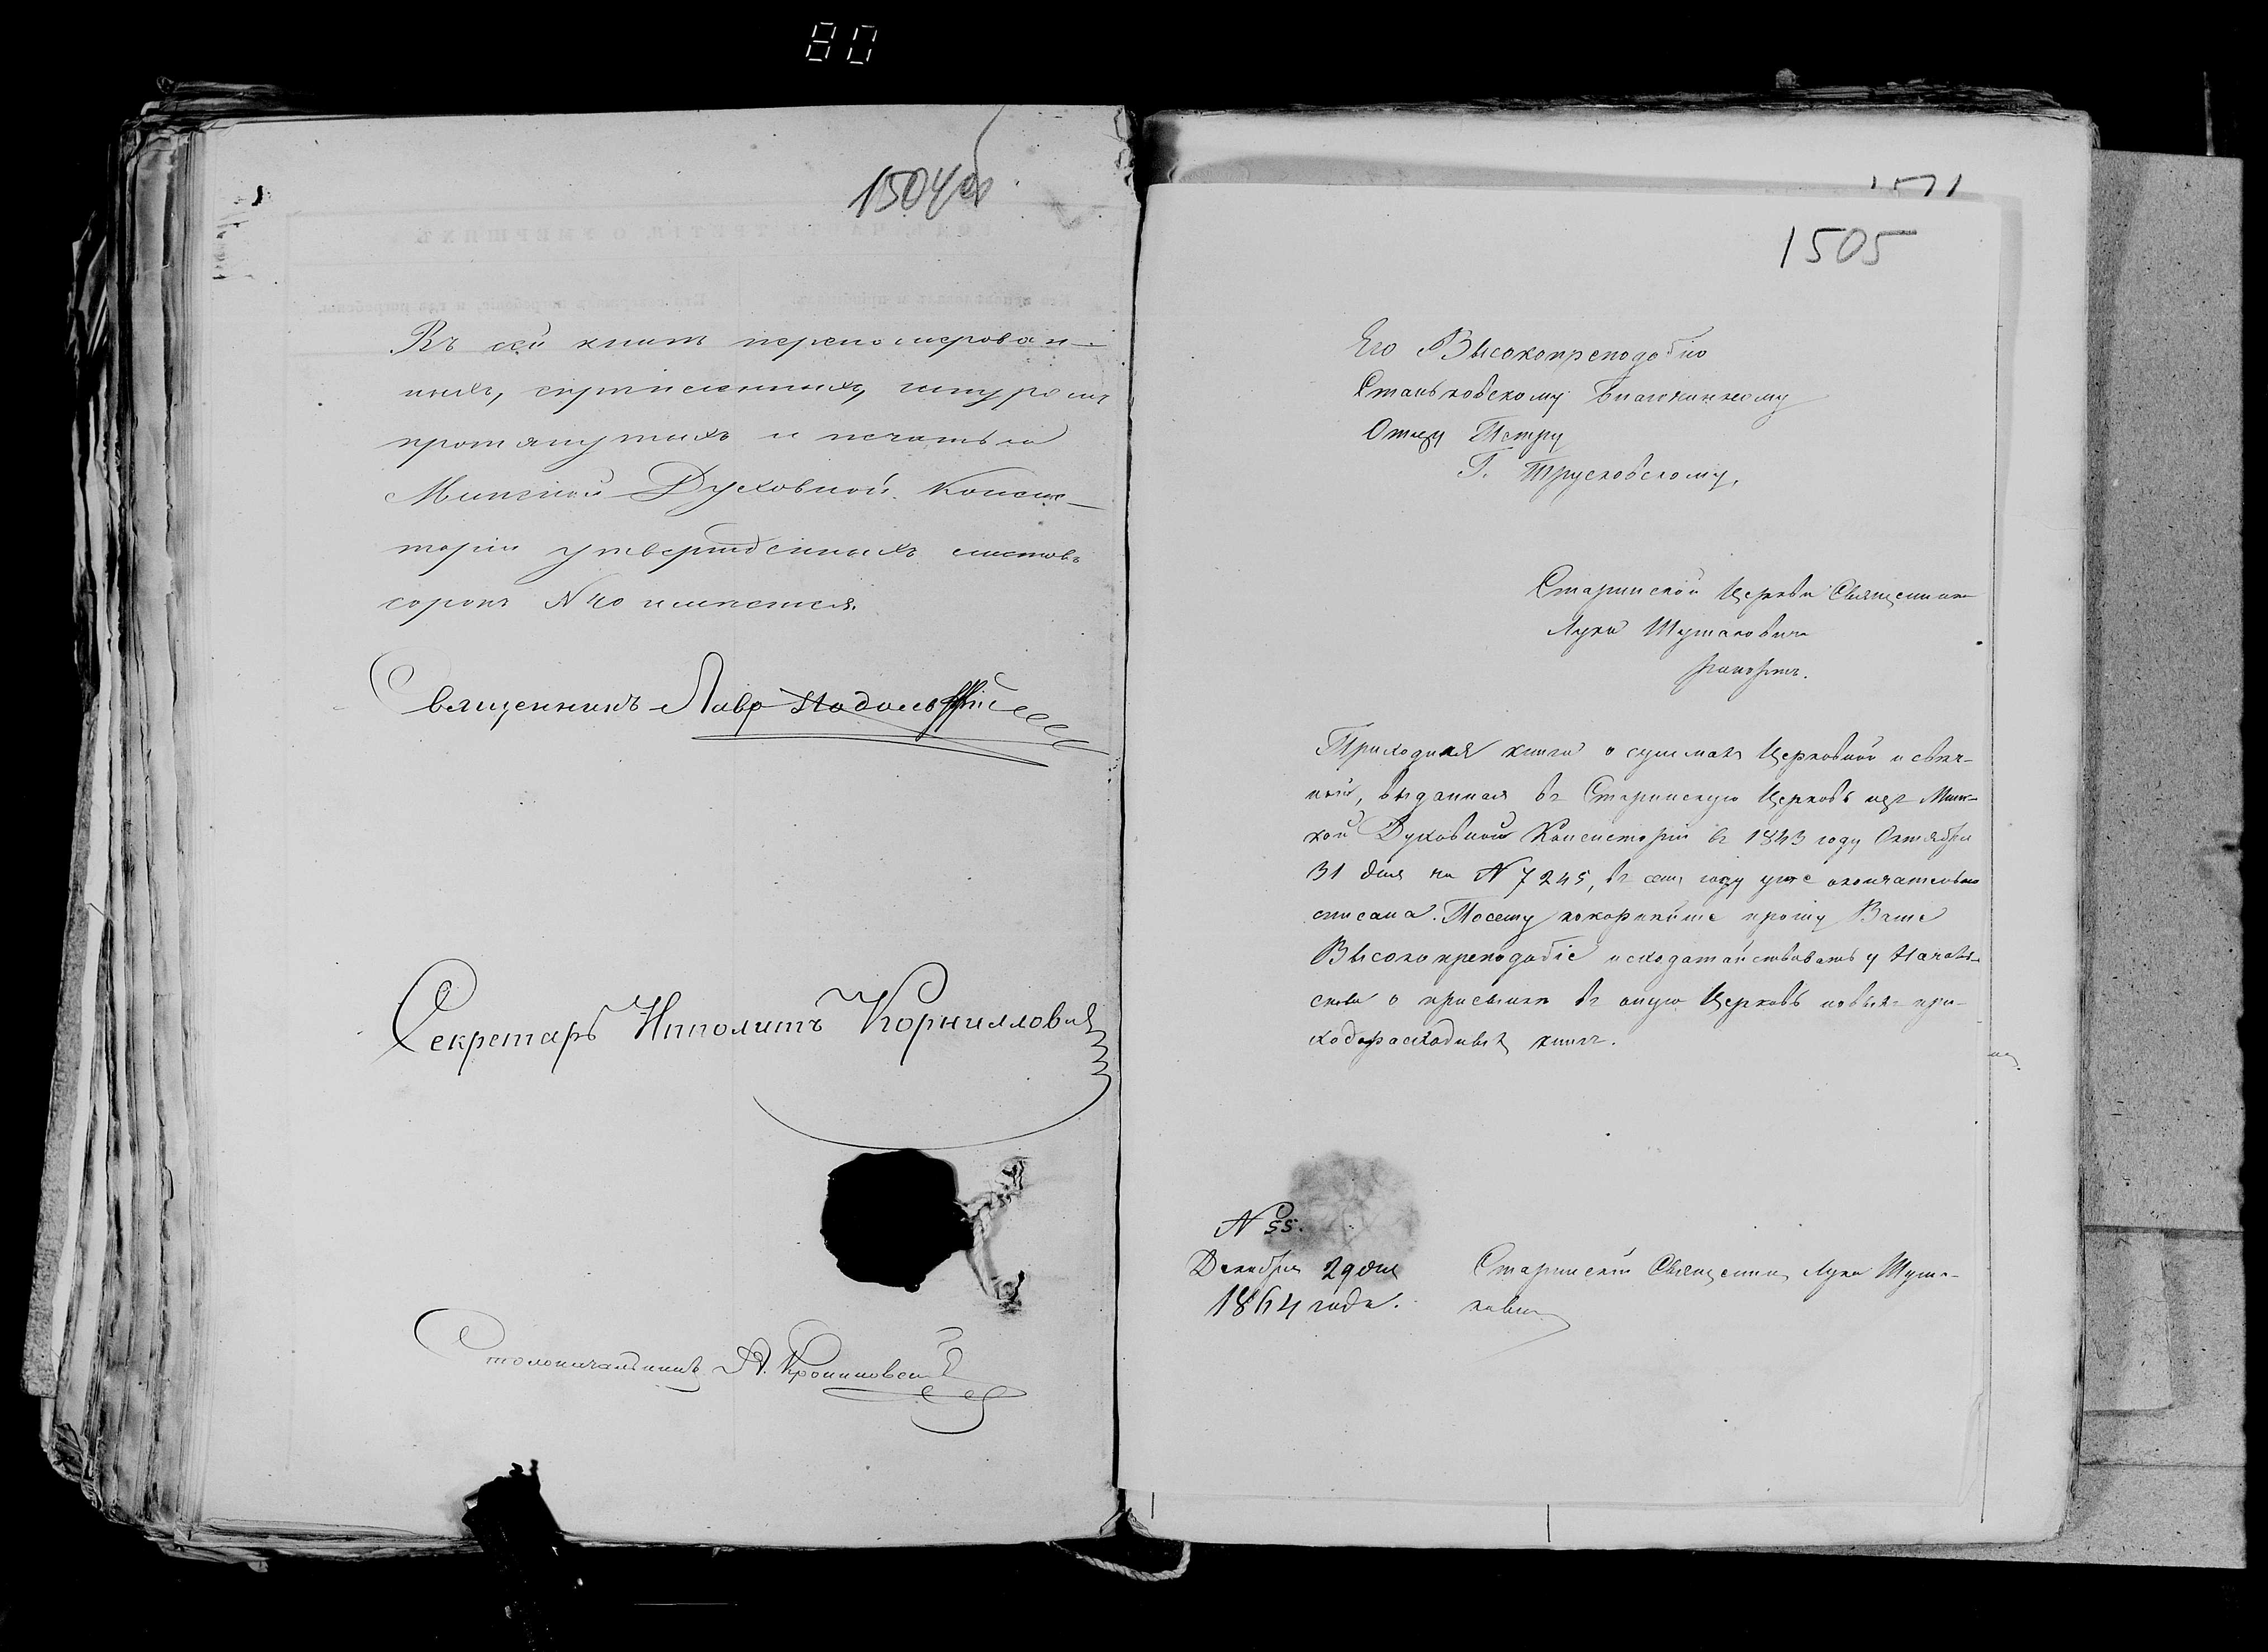 80
1504об
Въ сей книгѣ перенумерован-
ныхъ, скрѣпленныхъ, шнуромъ
протянутыхъ и печатью
Минской Духовной Консис-
торіи утвержденныхъ листовъ
сорокъ N 40 имѣется.
Священникъ Лавр
Секретарь Иполитъ Корниллович
Столоначальникъ А.
1505
Его Высокопреподобію
Станьковскому Благочинному
Отцу Петру
Г. Трусковскому,
Старинской Церкви Священника
Луки Шутаковича
рапортъ.
Приходная книга о суммахъ Церковной и свѣч-
ной, выданная въ Старинскую Церковь изъ Минс-
кой Духовной Консисторіи въ 1843 году Октября
31 дня на N 7245, въ семъ году уже окончательно
списана. Посему покорнѣйше прошу Ваше
Высокопреподобіе исходатайствовать у Началь-
ства о присылкѣ въ оную Церковь новыхъ при-
ходорасходныхъ книгъ.
N 55.
Декабря 29 дня
1864 года.
Старинскій Священникъ Лука Шута-
кович